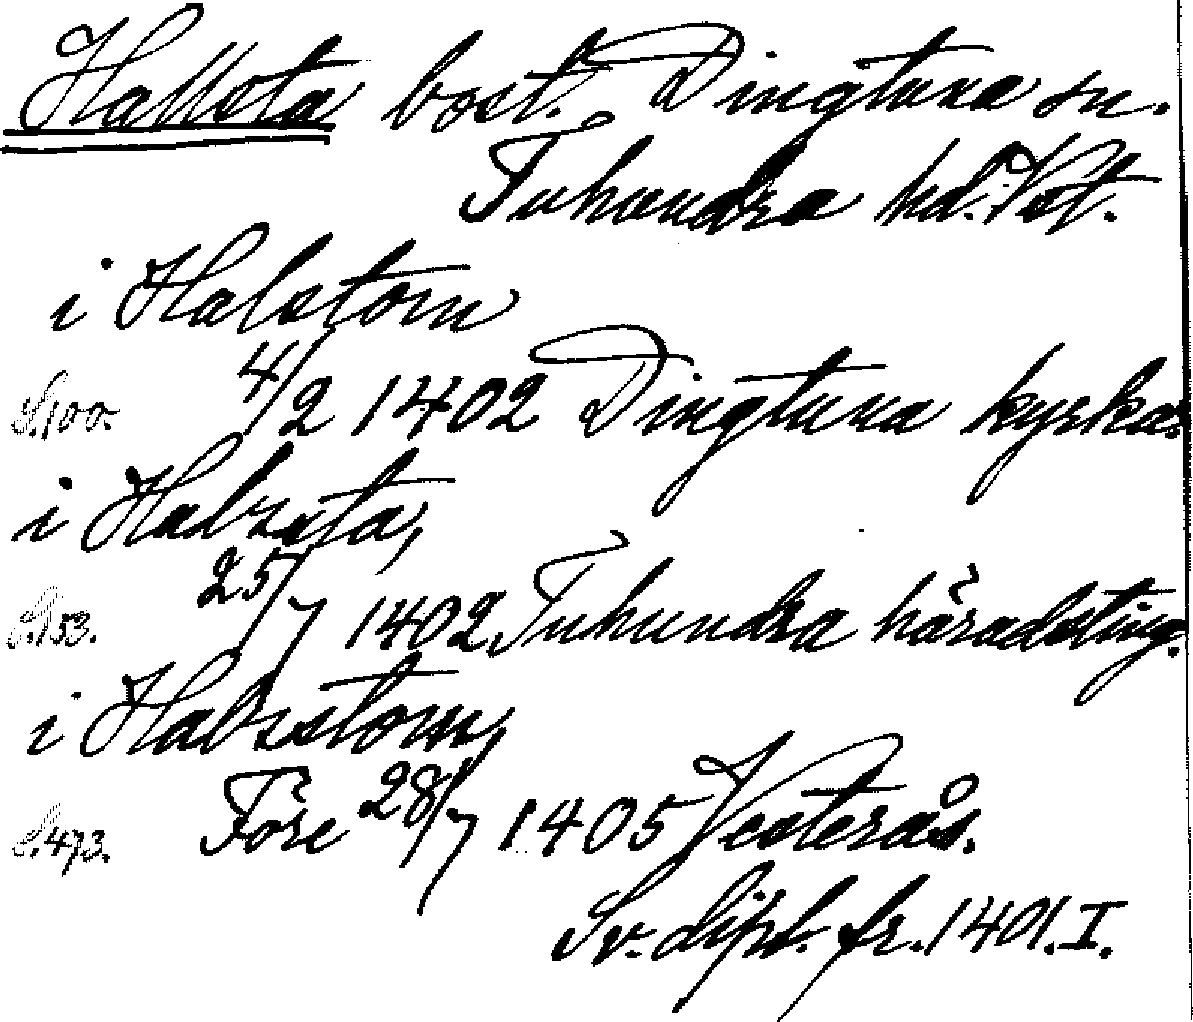 Hallsta bost. Dingtuna sn.
Tuhundra hd. Vst.
i Halstom
S.100. 4/2 1402 Dingtuna kyrka.
i Halzsta,
S.153. 25/7 1402 Tuhundra häradsting.
i Halzstom,
S.473. Före 28/7 1405 Vesterås.
Sv. dipl. fr. 1401. I.